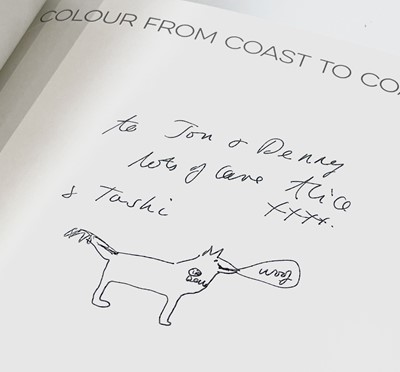 COLOUR FROM COAST TO CO
to Jon & Denny
lots of love Alice
& Tashi ++++.
woof